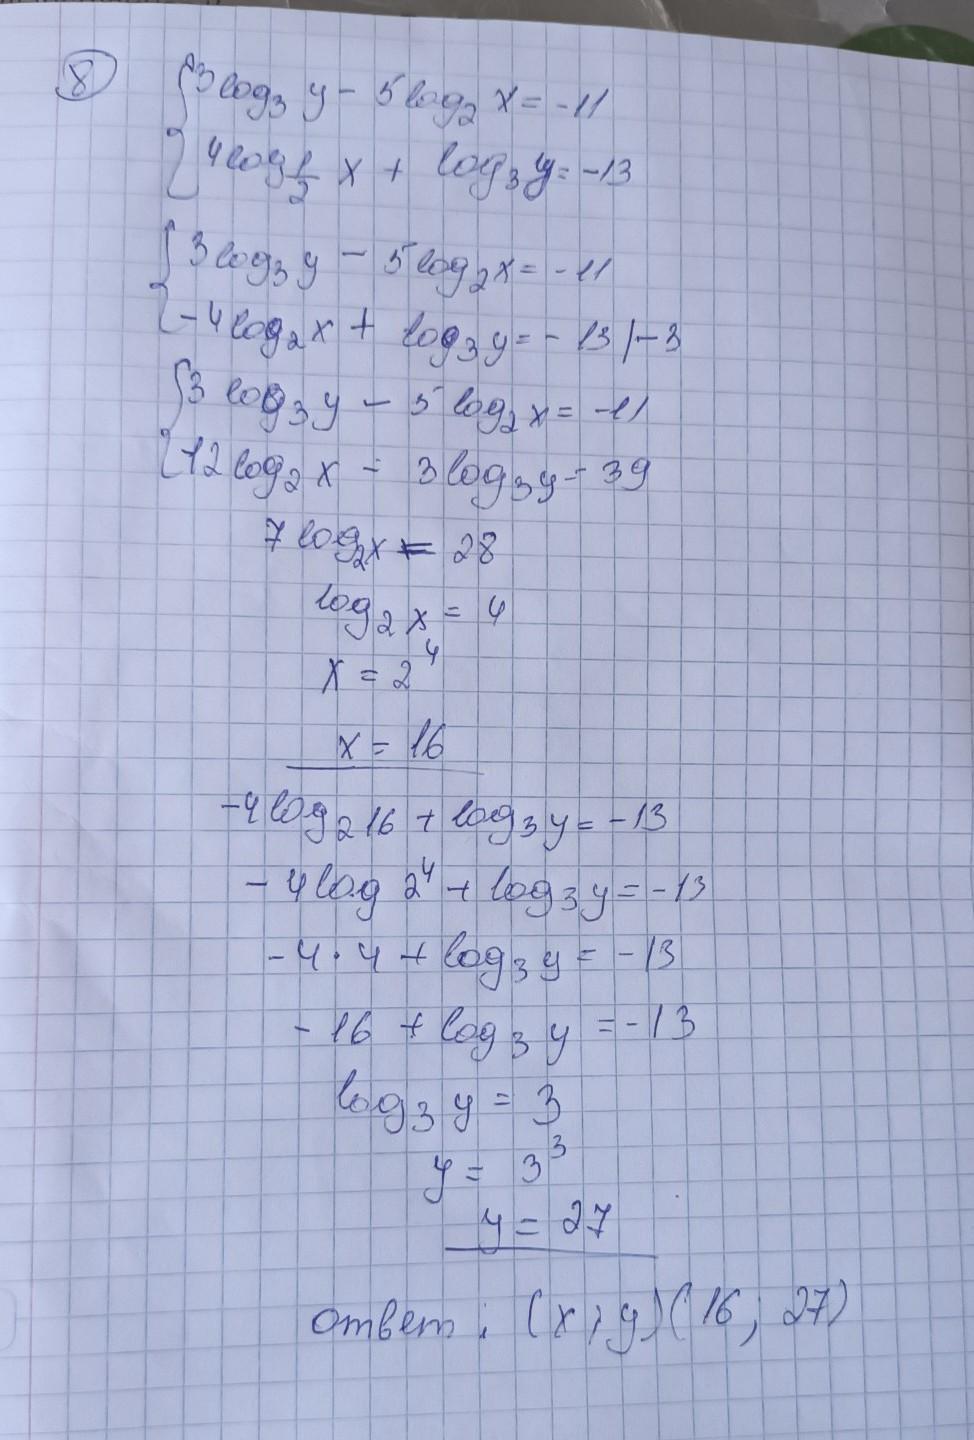 8) { 3 log₃ y - 5 log₂ x = -11
{ 4 log 1/2 x + log₃ y = -13
{ 3 log₃ y - 5 log₂ x = -11
{ -4 log₂ x + log₃ y = -13 | -3
{ 3 log₃ y - 5 log₂ x = -11
{ 12 log₂ x - 3 log₃ y = 39
7 log₂ x = 28
log₂ x = 4
x = 2⁴
x = 16
-4 log₂ 16 + log₃ y = -13
-4 log 2⁴ + log₃ y = -13
-4 · 4 + log₃ y = -13
-16 + log₃ y = -13
log₃ y = 3
y = 3³
y = 27
ответ: (x; y) (16; 27)